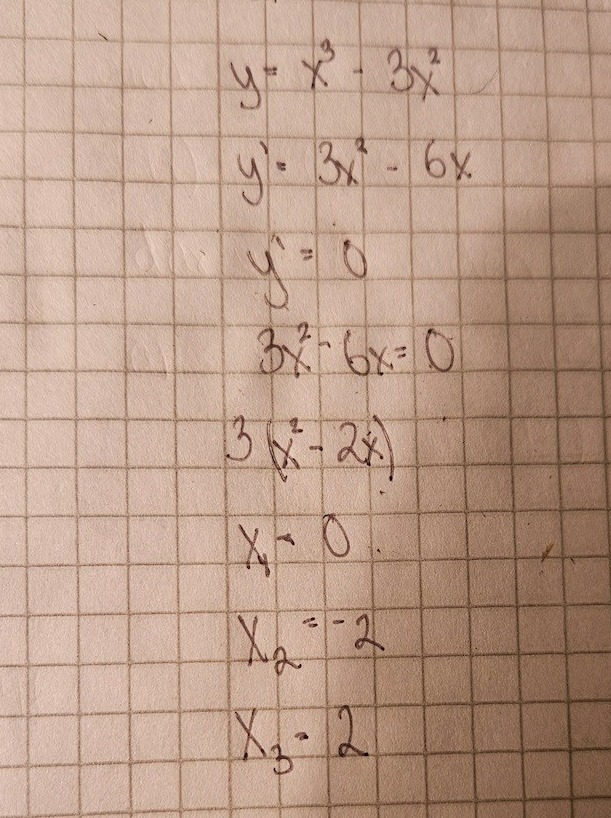 y = x³ - 3x²
y' = 3x² - 6x
y' = 0
3x² - 6x = 0
3(x² - 2x)
x₁ = 0
x₂ = -2
x₃ = 2